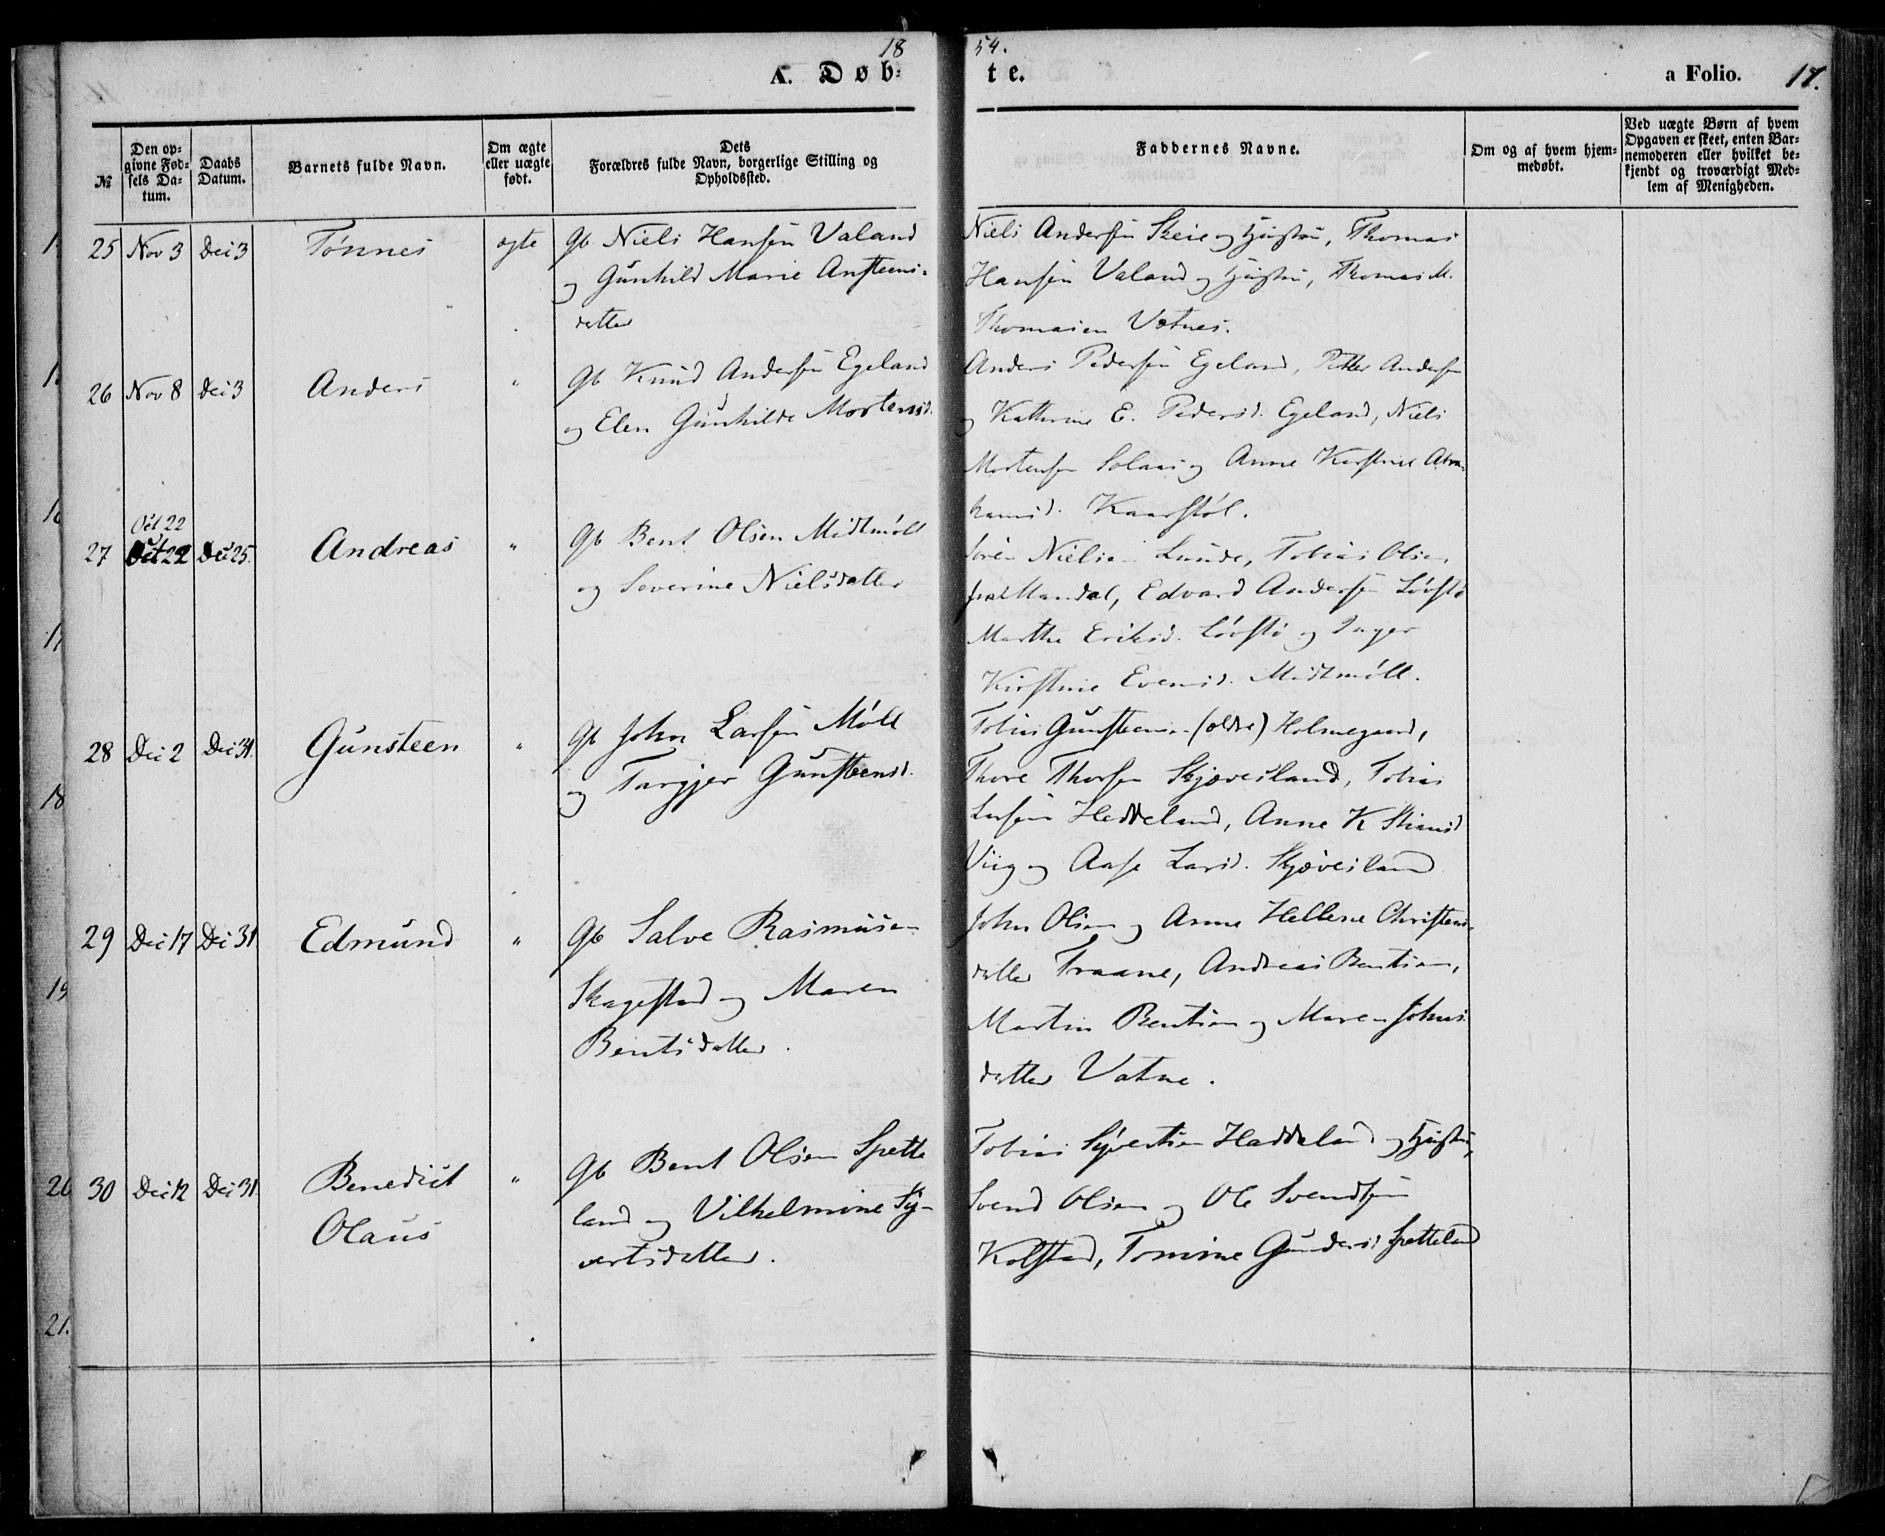 18 54.
A. Døb- te. a Folio. 17.
№ Den opgivne Fødsels Datum. Daabs Datum. Barnets fulde Navn. Om ægte eller uægte født. Dets Forældres fulde Navn, borgerlige Stilling og Opholdssted. Faddernes Navne. Om og af hvem hjemmedøbt. Ved uægte Børn af hvem Opgaven er skeet, enten Barnemoderen eller hvilket bekjendt og troværdigt Medlem af Menigheden.
25 Nov 3 Dec 3 Tønnes ægte Gb Niels Hansen Valand
og Gunhild Marie Anstensdatter
Niels Andersen Skeie og Hustru, Thomas
Hansen Valand og Hustru, Thomas M.
Thomasen Vatnes.
26 Nov 8 Dec 3 Anders " Gb Knud Andersen Egeland
og Elen Gunhilde Mortensd.
Anders Pedersen Egeland, Peder Andersen
og Kathrine E. Pedersd. Egeland, Niels
Mortensen Solaas og Anne Kirstine Abra-
hamsd. Kaarstøl.
Oct 22
27 Oct 22 Dec 25. Andreas " Gb Bent Olsen Midtmøll
og Severine Nielsdatter
Sören Nielsen Lunde, Tobias Olsen
Mandal, Edvard Andersen Løvstø
Marthe Eriksd. Løvstø og Inger
Kirstine Evensd. Midtmøll.
28 Dec 2 Dec 31. Gunsteen " Gb John Larsen Møll
og Targjer Gunsteensd.
Tobias Gunsteensen (ældre) Holmegaard,
Thore Thorsen Skjævesland, Tobias
Larsen Heddeland, Anne K
Viig og Aase Larsd. Skjøvesland
29 Dec 17 Dec 31 Edmund " Gb Salve Rasmusen
Skagestad og Maren
Bentsdatter.
John Olsen og Anne Hellene Christens-
datter Traane, Andreas Bentsen,
Martin Bentsen og Maren Johns-
datter Vatne.
30 Dec 12 Dec 31 Benedict
Olaus " Gb Bent Olsen Spette-
land og Vilhelmine Sy-
vertsdatter.
Tobias Syvertsen Haddeland og Hustru,
Svend Olsen og Ole Svendsen
Kolstad, Tomine Gundersd Spetteland
18
19
20
21.